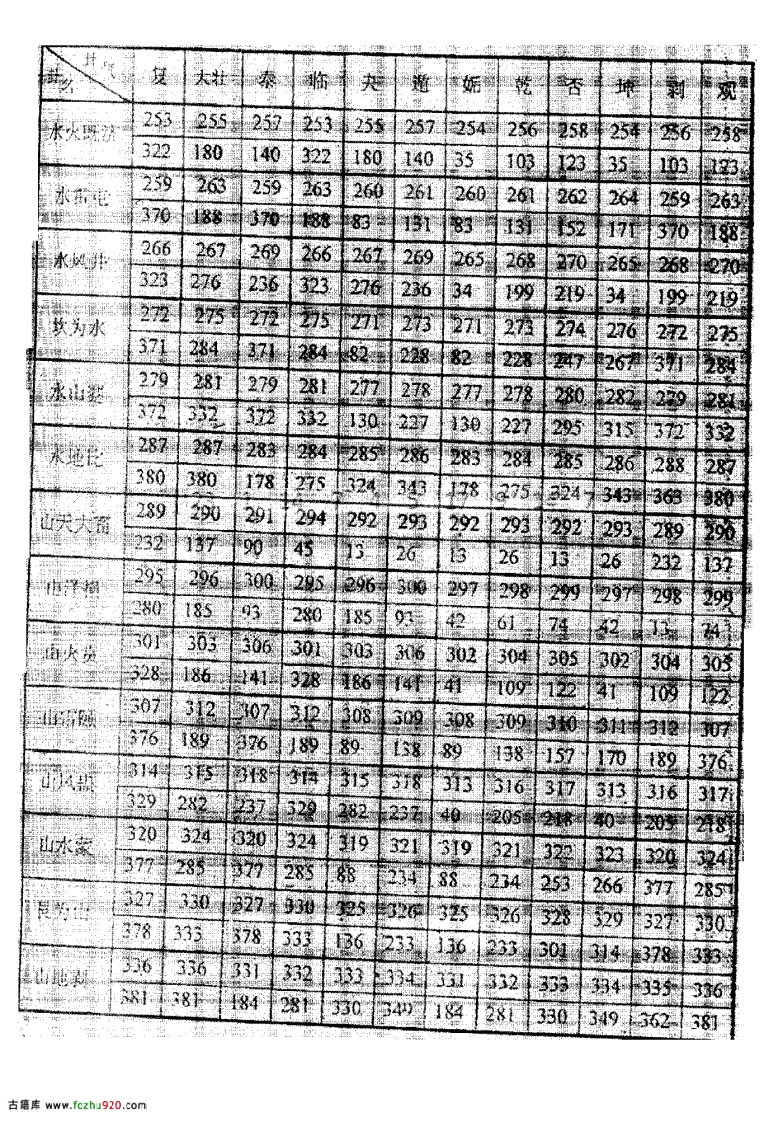 卦气 复 大壮 泰 临 夬 遁 姤 乾 否 坤 剥 观
卦名
水火既济 253 255 257 253 255 257 254 256 258 254 256 258
322 180 140 322 180 140 35 103 123 35 103 123
水雷屯 259 263 259 263 260 261 260 261 262 264 259 263
370 188 370 188 83 131 83 131 152 171 370 188
水风井 266 267 269 266 267 269 265 268 270 265 268 270
323 276 236 323 276 236 34 199 219 34 199 219
坎为水 272 275 272 275 271 273 271 273 274 276 272 275
371 284 371 284 82 228 82 228 247 267 371 284
水山蹇 279 281 279 281 277 278 277 278 280 282 279 281
372 332 372 332 130 227 130 227 295 315 372 332
水地比 287 287 283 284 285 286 283 284 285 286 288 287
380 380 178 275 324 343 178 275 324 343 363 380
山天大畜 289 290 291 294 292 293 292 293 292 293 289 290
232 137 90 45 13 26 13 26 13 26 232 137
山泽损 295 296 300 295 296 300 297 298 299 297 298 299
280 185 93 280 185 93 42 61 74 42 13 74
山火贲 301 303 306 301 303 306 302 304 305 302 304 305
328 186 141 328 186 141 41 109 122 41 109 122
山雷颐 307 312 307 312 308 309 308 309 310 311 312 307
376 189 376 189 89 138 89 138 157 170 189 376
山风蛊 314 315 318 314 315 318 313 316 317 313 316 317
329 282 237 329 282 237 40 205 218 40 205 218
山水蒙 320 324 320 324 319 321 319 321 322 323 320 324
377 285 377 285 88 234 88 234 253 266 377 285
艮为山 327 330 327 330 325 326 325 326 328 329 327 330
378 333 378 333 136 233 136 233 301 314 378 333
山地剥 336 336 331 332 333 334 331 332 333 334 335 336
381 381 184 281 330 349 184 281 330 349 362 381
古籍库 www.fozhu920.com